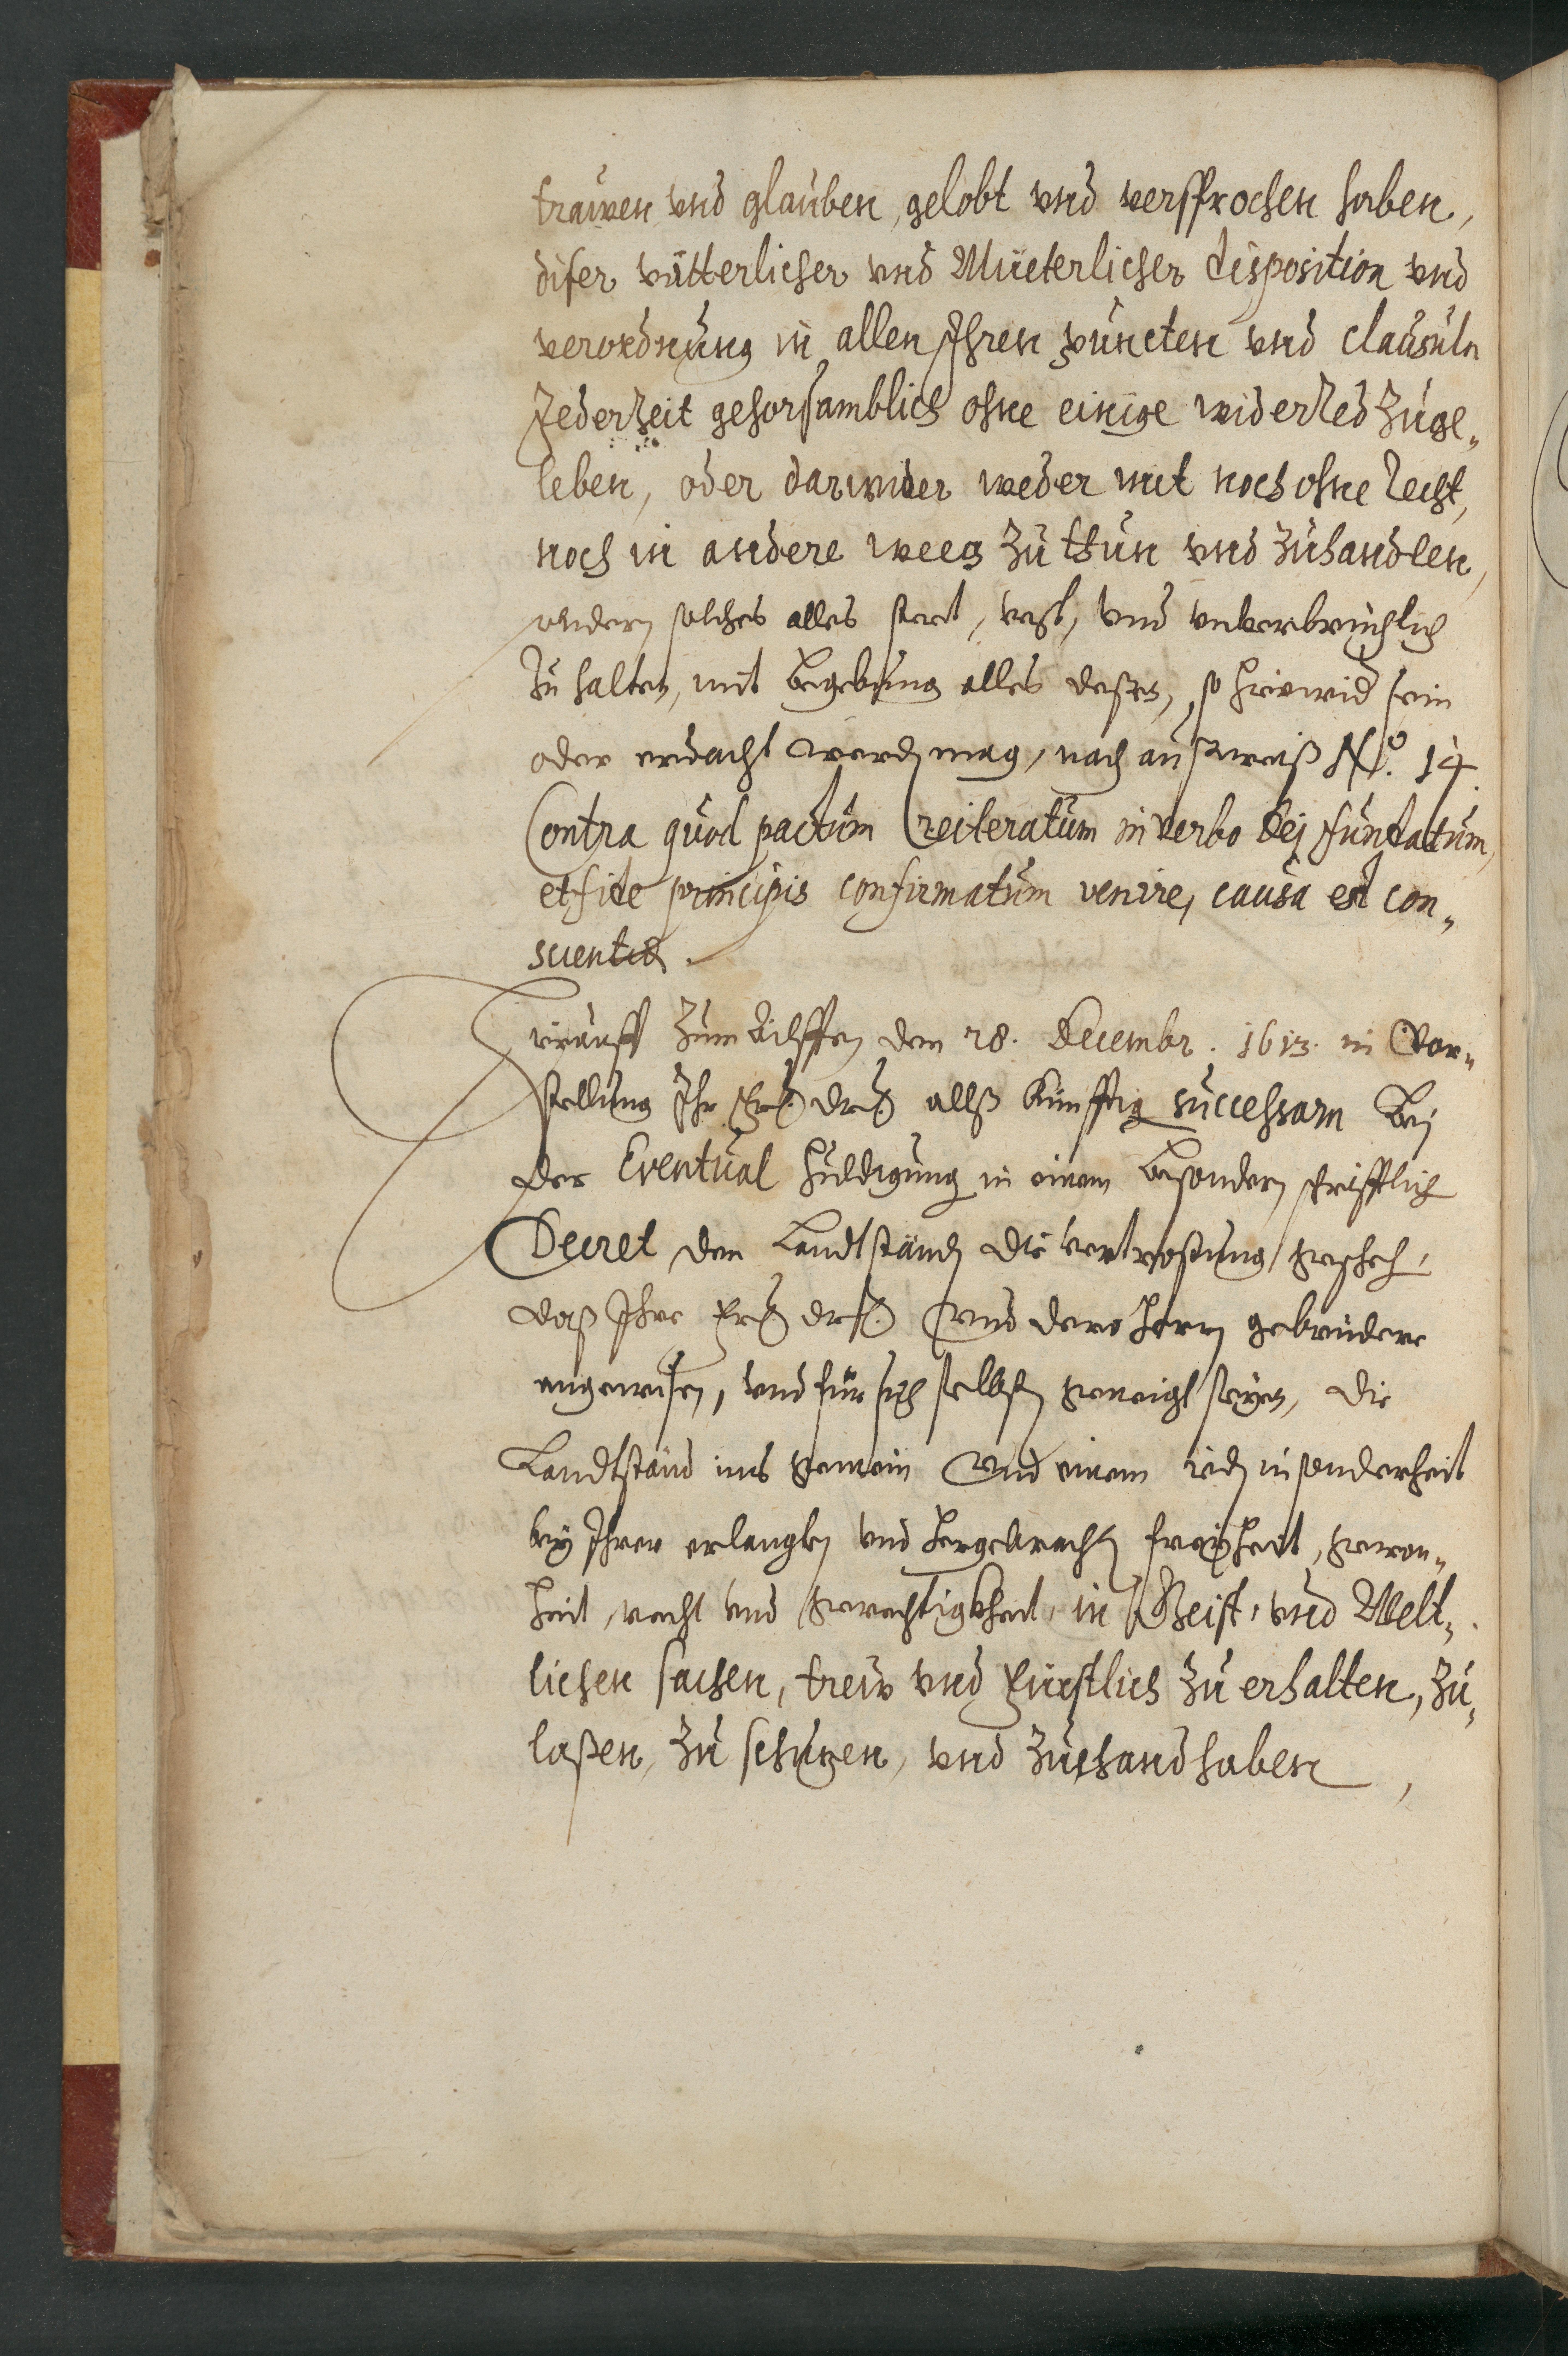 trauwen vnd glauben, gelobt vnd versprochen haben,
diser vätterlicher vnd Müeterlicher disposition vnd
verordnung in allen Ihren puncten vnd clausuln
Jederzeit gehorsamblich ohne einige widerred zuge„
leben, oder darwider weder mit noch ohne recht,
noch in andere weeg zu thun vnd zuhandlen,
sondern solches alles steet, vest, vnd vnverbrüchlich
zu halten, mit begebung alles deßen, so hierwid sein
oder erdacht werden mag, nach außweiß No. 14.
Contra quod pactum reiteratum in verbo Dei fundatum,
et fide principis confirmatum venire, causa est con„
scientiæ.
Hierauff zum Eilfften den 28. Decembr. 1613. in Vor„
stellung Ihr Frl. Drl. allß künfftig successorn bei
der Eventual huldigung in einem besondern schrifftlich
Decret den Landtständen die vertröstung geschehen,
daß Ihre Frl. Drl. vnd dero herrn gebrüdere
angewisen, vnd für sich selbsten geneigt seyen, die
Landtständ ins gemein vnd einem ieden insonderheit
bey Ihrer erlangten vnd hergebrachten freyheit, gewon„
heit, recht vnd gerechtigkheit, in Geist, vnd Welt„
lichen sachen, treuw vnd fürstlich zu erhalten, zu„
laßen, zu schuzen, vnd zuehandhaben,